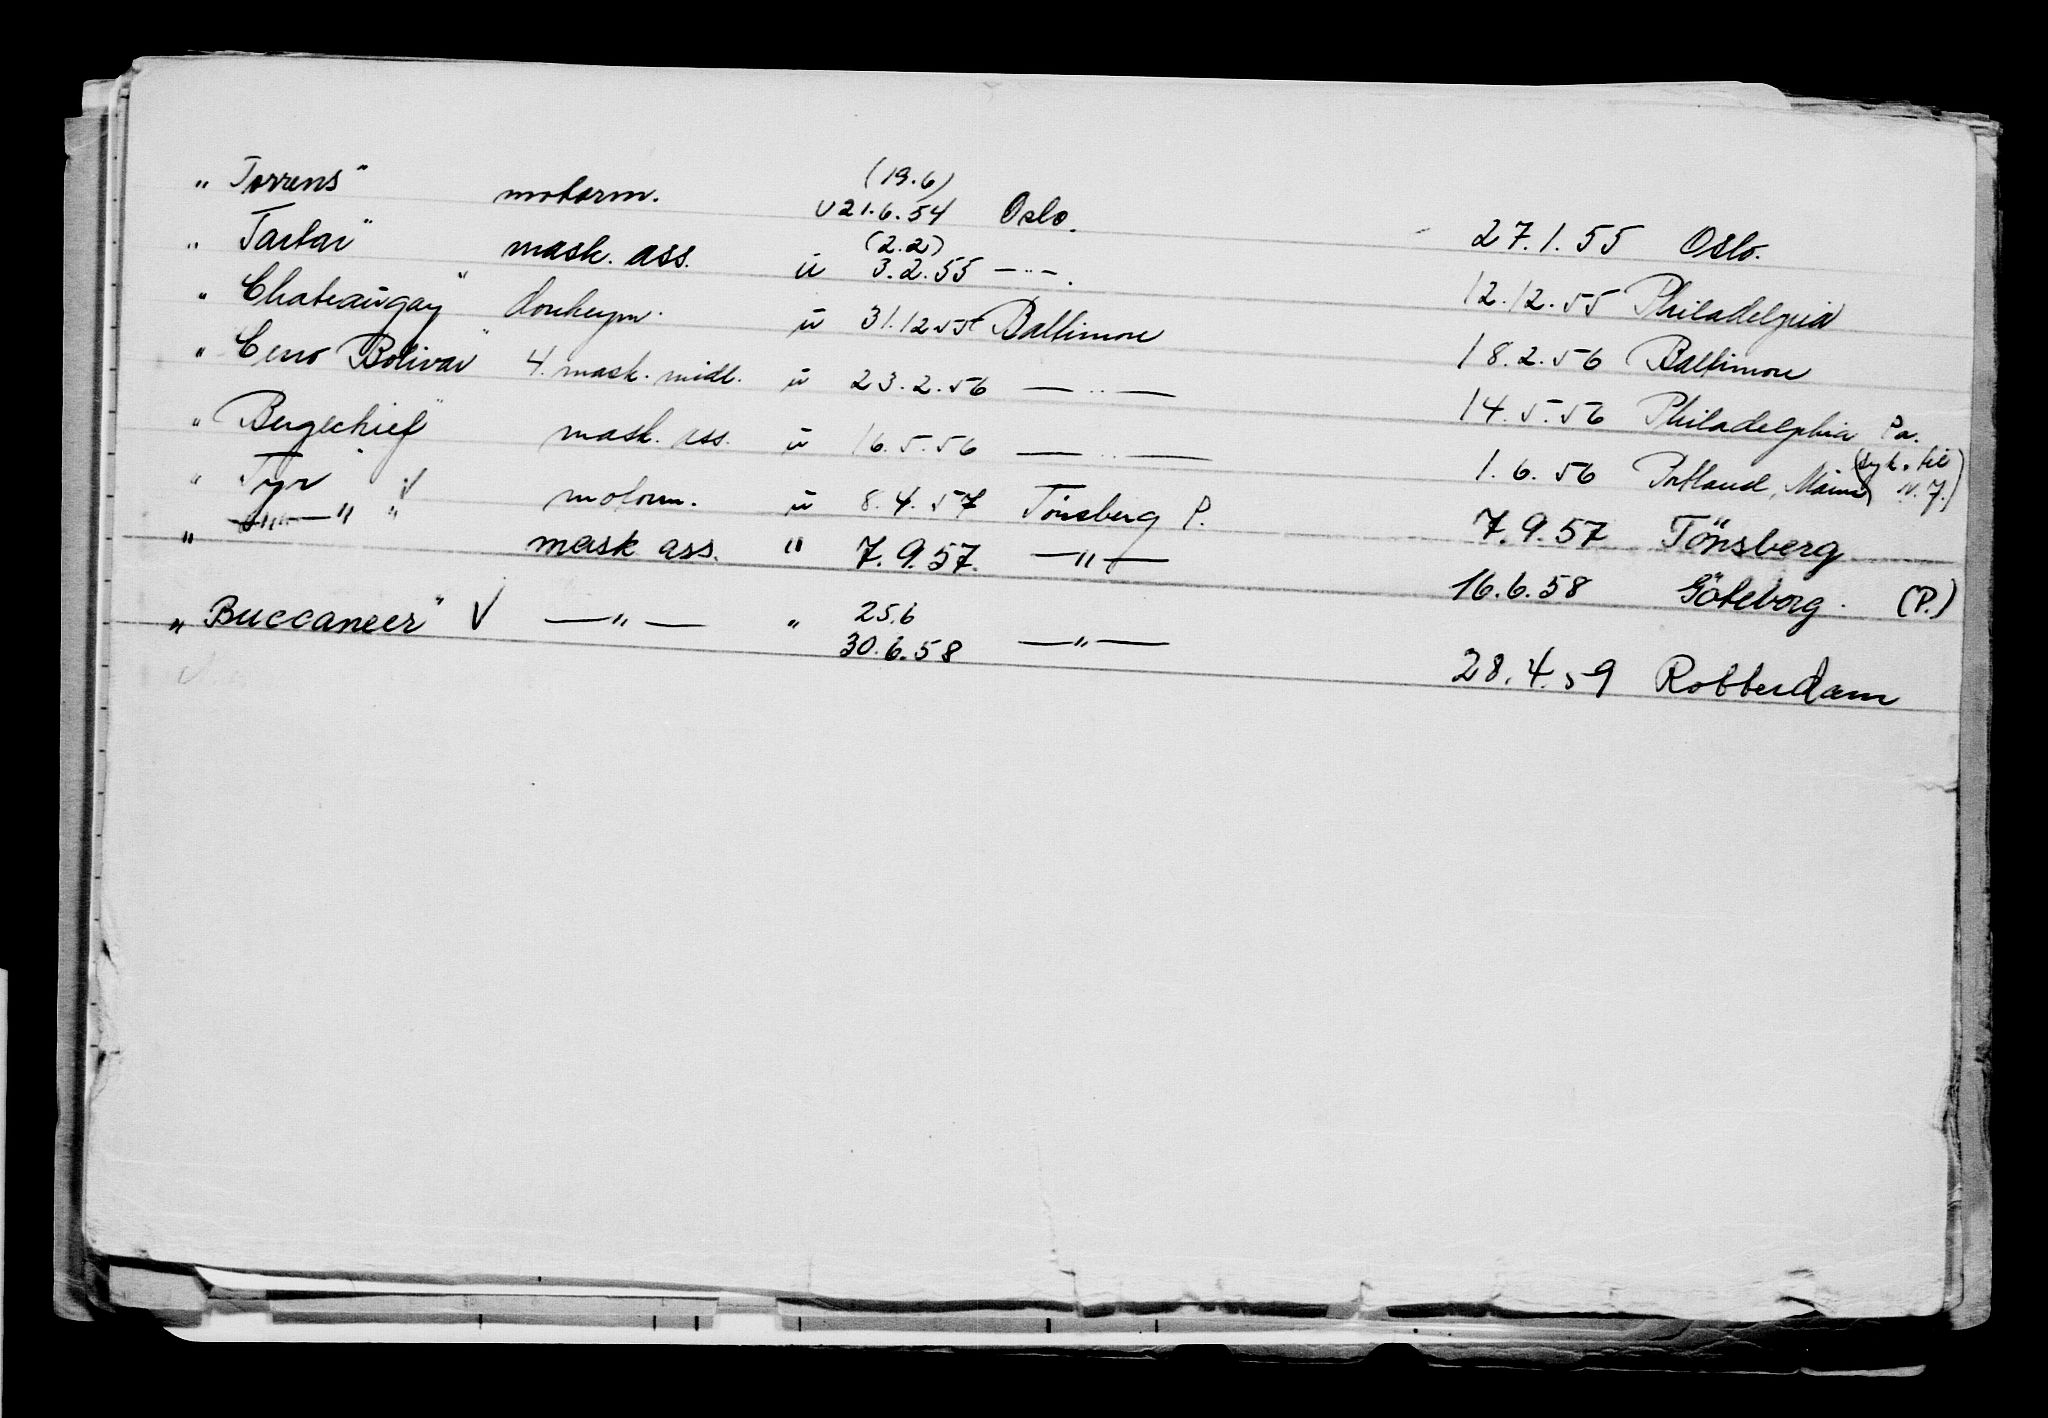 „ Torrens" motorm. (19.6) u 21.6.54 Oslo. 27.1.55 Oslo.
„ Tartar" mask. ass. ü (2.2) 3.2.55 — " —. 12.12.55 Philadelpia
„ Chateaugay" donkeym. ü 31.12 55 Baltimore 18.2.56 Baltimore
„ Cerro Bolivar" 4. mask. midl. ü 23.2.56 — " — 14.5.56 Philadelphia Pa.
„ Bergechief" mask. ass. ü 16.5.56 — " — 1.6.56 Portland, Maine (syk. til N.J.)
„ Tyr" V motorm. ü 8.4.57 Tönsberg P. 7.9.57 Tönsberg
„ — " — " mask ass. " 7.9.57. — " — 16.6.58 Göteborg. (P.)
„ Buccaneer" V — " — " 25.6 30.6.58 — " — 28.4.59 Rotterdam